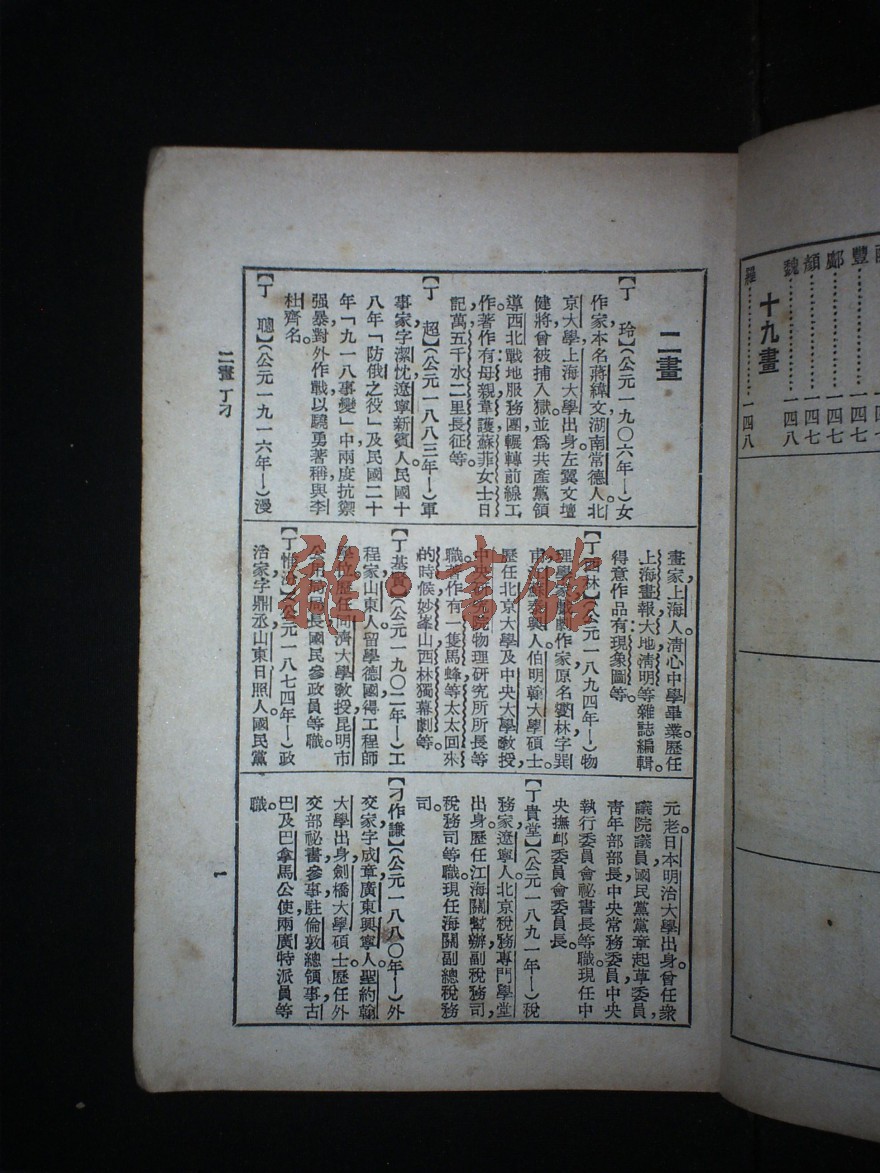 二畫
【丁　玲】（公元一九〇六年—）女
作家，本名蔣緯文，湖南常德人。北
京大學，上海大學出身。左翼文壇
健將，曾被捕入獄，並爲共產黨領
導西北戰地服務團，輾轉前線工
作。著作有：母親，韋護，蘇菲女士日
記，萬五千水二里長征等。
【丁　超】（公元一八八三年—）軍
事家，字潔忱，遼寧新賓人。民國十
八年「防俄之役」及民國二十
年「九一八事變」中，兩度抗禦
强暴，對外作戰以驍勇著稱，與李
杜齊名。
【丁　聰】（公元一九一六年—）漫
畫家，上海人。清心中學畢業。歷任
上海畫報，大地，清明等雜誌編輯。
得意作品有：現象圖等。
【丁西林】（公元一八九四年—）物
理學家，戲劇作家，原名燮林，字巽
甫，江蘇泰興人。伯明翰大學碩士。
歷任北京大學及中央大學教授，
中央研究院物理研究所所長等
職。著作有：一隻馬蜂等太太回來
的時候，妙峯山，西林獨幕劇等。
【丁基實】（公元一九〇二年—）工
程家，山東人。留學德國，得工程師
學位。歷任同濟大學教授，昆明市
公用局局長，國民參政員等職。
【丁惟汾】（公元一八七四年—）政
治家，字鼎丞，山東日照人。國民黨
元老。日本明治大學出身。曾任衆
議院議員，國民黨黨章起草委員，
青年部部長，中央常務委員，中央
執行委員會祕書長等職。現任中
央撫卹委員會委員長。
【丁貴堂】（公元一八九一年—）稅
務家，遼寧人。北京稅務專門學堂
出身。歷任江海關幫辦，副稅務司，
稅務司等職。現任海關副總稅務
司。
【刁作謙】（公元一八八〇年—）外
交家，字成章，廣東興寧人。聖約翰
大學出身，劍橋大學碩士。歷任外
交部祕書，參事，駐倫敦總領事，古
巴及巴拿馬公使，兩廣特派員等
職。
二畫　丁刁
1
豐…………一四七
鄺…………一四七
顏…………一四七
魏…………一四八
十九畫
羅…………一四八
雜·書館